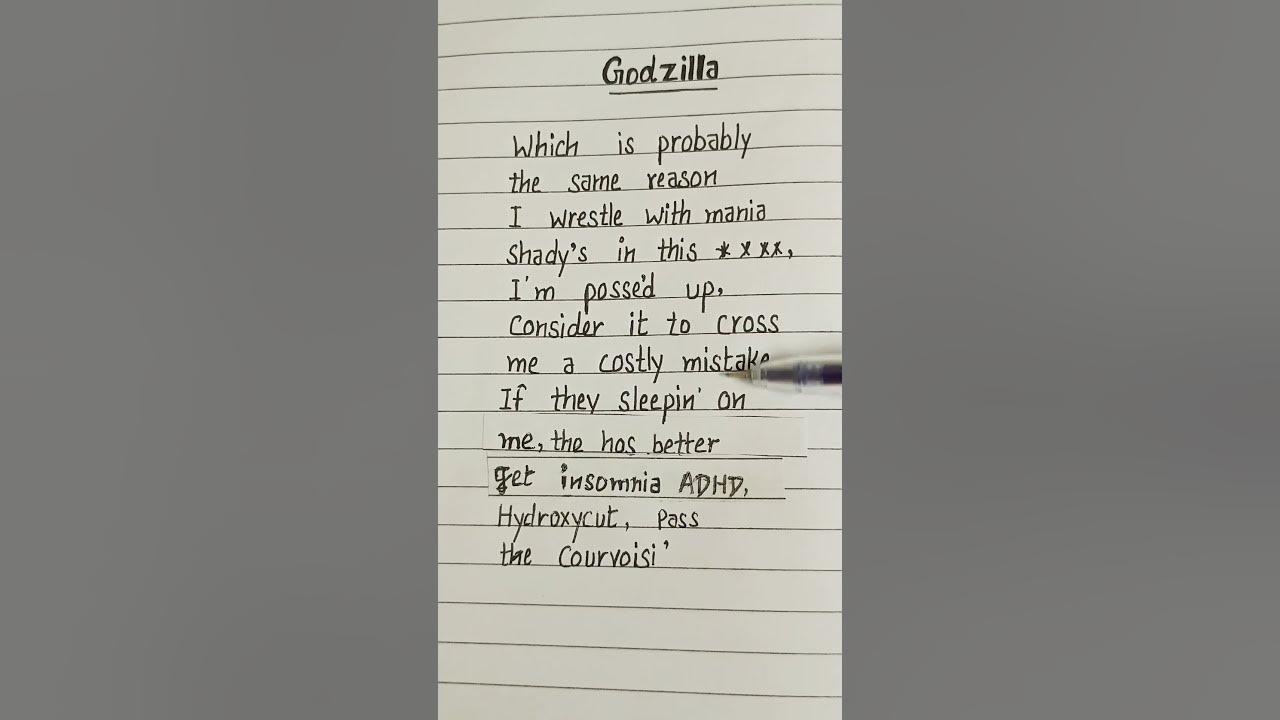 Godzilla
Which is probably
the same reason
I wrestle with mania
Shady's in this ****,
I'm posse'd up,
Consider it to cross
me a costly mistake
If they sleepin' on
me, the hos better
get insomnia ADHD,
Hydroxycut, Pass
the Courvoisi'